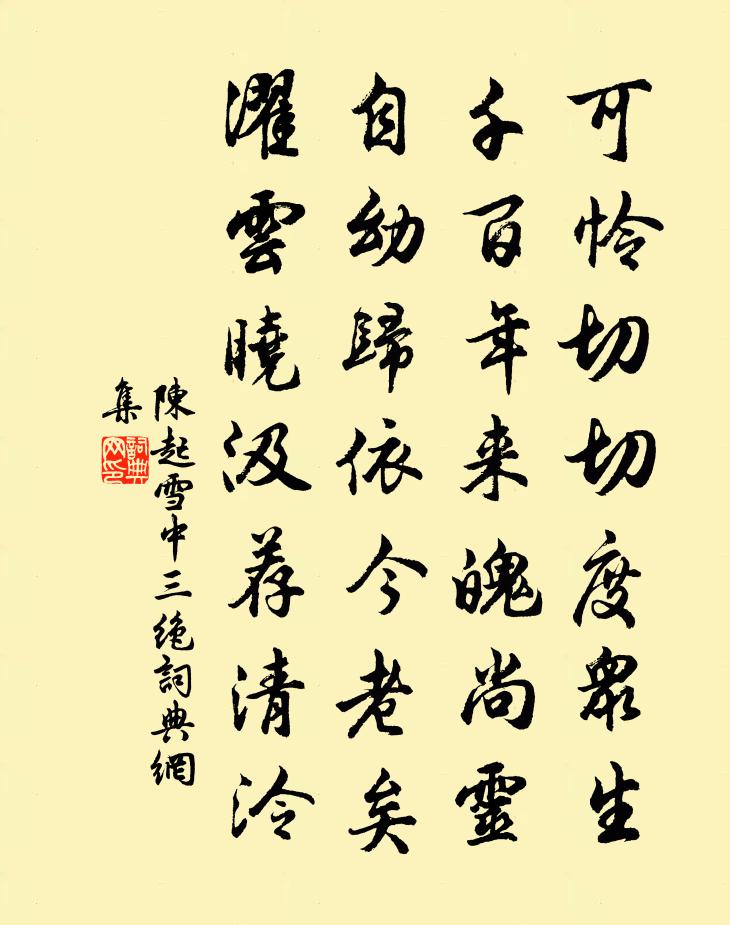 可怜切切度眾生
千百年来魄尚靈
自幼歸依今老矣
濯雲曉汲荐清泠
陳起雪中三绝詞典網
集
詞典網印